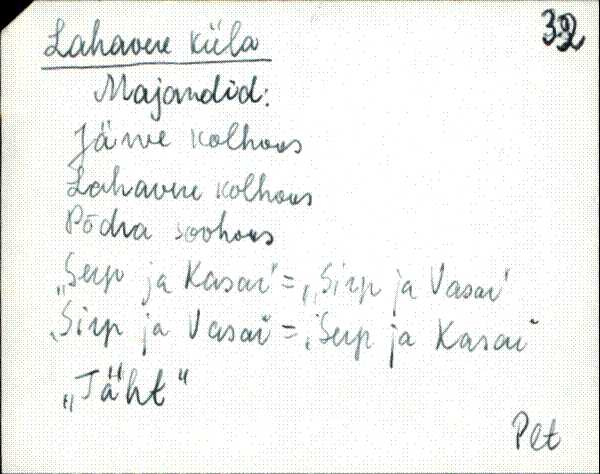 Lahavere küla
Majandid:
Järve kolhoos
Lahavere kolhoos
Põdra sovhoos
„Serp ja Kasar" = „Sirp ja Vasar"
„Sirp ja Vasar" = „Serp ja Kasar"
„Täht"
Plt